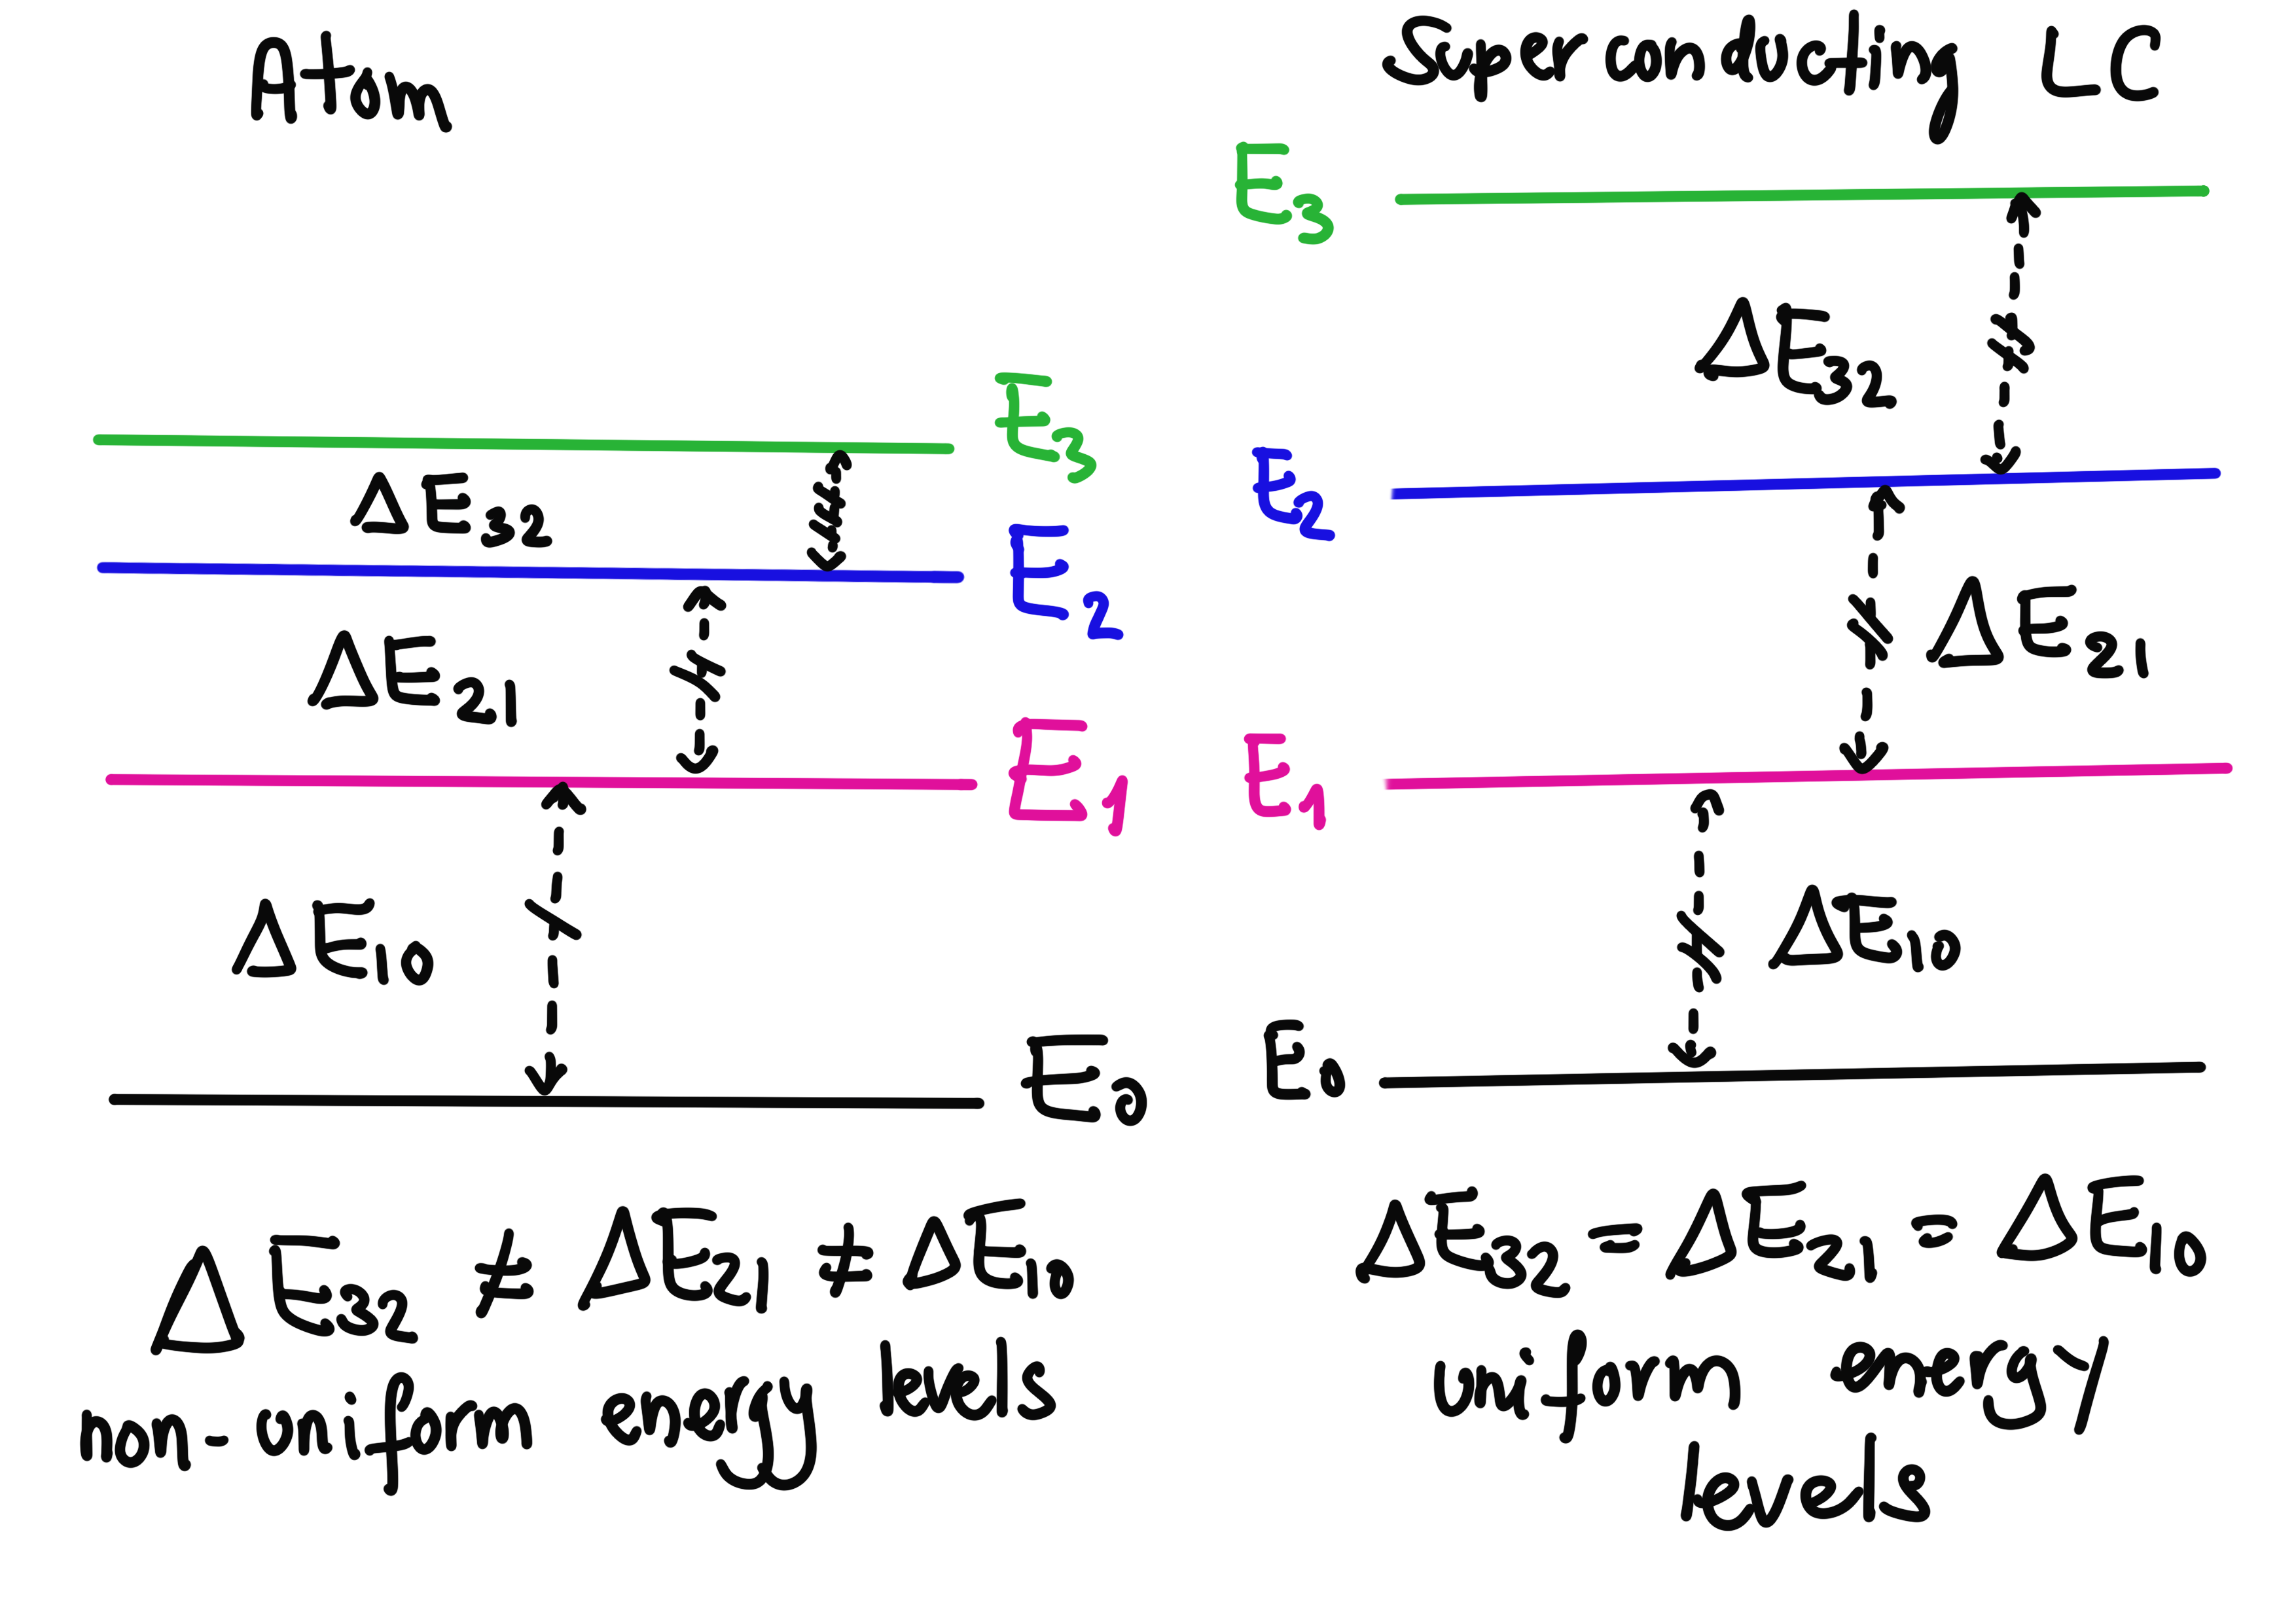 Atom
E₃
ΔE₃₂
E₂
ΔE₂₁
E₁
ΔE₁₀
E₀
ΔE₃₂ ≠ ΔE₂₁ ≠ ΔE₁₀
non-uniform energy levels
Superconducting LC
E₃
ΔE₃₂
E₂
ΔE₂₁
E₁
ΔE₁₀
E₀
ΔE₃₂ = ΔE₂₁ = ΔE₁₀
uniform energy
levels